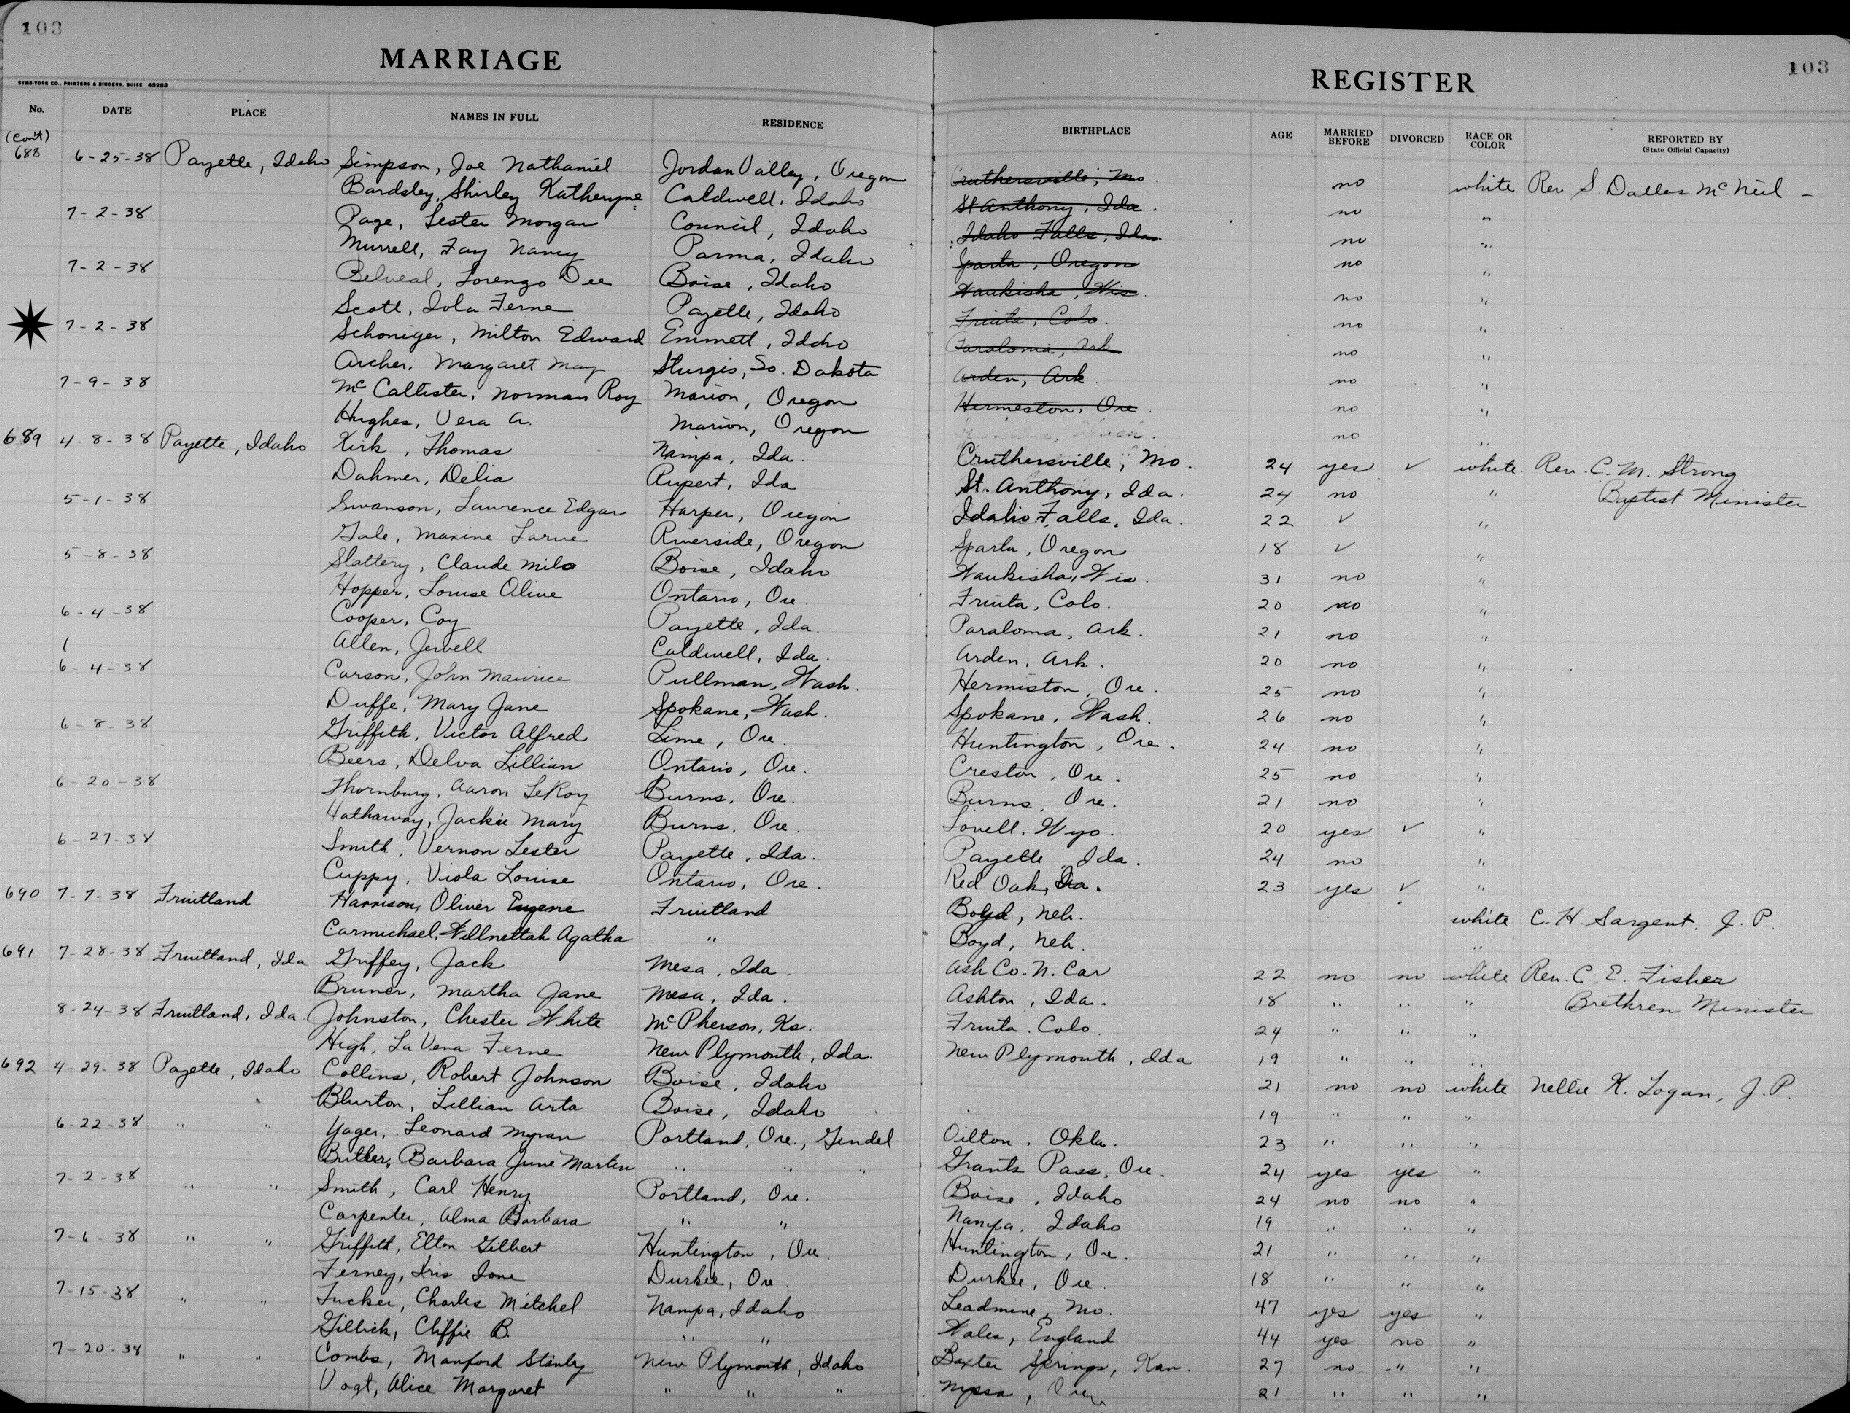 103
MARRIAGE
REGISTER
103
SYMS-YORK CO., PRINTERS & BINDERS, BOISE
No. DATE PLACE NAMES IN FULL RESIDENCE BIRTHPLACE AGE MARRIED BEFORE DIVORCED RACE OR COLOR REPORTED BY (State Official Capacity)
(Con't)
688 6-25-38 Payette, Idaho Simpson, Joe Nathaniel Jordan Valley, Oregon Cruthersville, Mo no white Rev S. Dallas McNeil -
Bardsley, Shirley Katheryne Caldwell, Idaho St Anthony, Ida. no "
7-2-38 Page, Lester Morgan Council, Idaho Idaho Falls, Ida no "
Murrell, Fay Nancy Parma, Idaho Sparta, Oregon no "
7-2-38 Belveal, Lorenzo Dee Boise, Idaho Waukisha, Wis. no "
Scott, Iola Ferne Payette, Idaho Fruita, Colo. no "
7-2-38 Schoniger, Milton Edward Emmett, Idaho Paraloma, Ark no "
Archer, Margaret May Sturgis, So. Dakota Arden, Ark. no "
7-9-38 McCallister, Norman Roy Marion, Oregon Hermeston, Ore. no "
Hughes, Vera A. Marion, Oregon no "
689 4-8-38 Payette, Idaho Kirk, Thomas Nampa, Ida. Cruthersville, Mo. 24 yes ✓ white Rev. C. M. Strong
Dahmer, Delia Rupert, Ida St. Anthony, Ida. 24 no " Baptist Minister
5-1-38 Swanson, Lawrence Edgar Harper, Oregon Idaho Falls, Ida. 22 ✓ "
Gale, Maxine Larue Riverside, Oregon Sparta, Oregon 18 ✓ "
5-8-38 Slattery, Claude Milo Boise, Idaho Waukisha, Wis. 31 no "
Hopper, Louise Aline Ontario, Ore. Fruita, Colo. 20 no "
6-4-38 Cooper, Coy Payette, Ida. Paraloma, Ark. 21 no "
Allen, Jewell Caldwell, Ida. Arden, Ark. 20 no "
6-4-38 Carson, John Maurice Pullman, Wash. Hermiston, Ore. 25 no "
Duffe, Mary Jane Spokane, Wash. Spokane, Wash. 26 no "
6-8-38 Griffith, Victor Alfred Lime, Ore. Huntington, Ore. 24 no "
Beers, Delva Lillian Ontario, Ore. Creston, Ore. 25 no "
6-20-38 Thornburg, Aaron LeRoy Burns, Ore. Burns, Ore. 21 no "
Hathaway, Jackie Mary Burns, Ore. Lovell, Wyo. 20 yes ✓ "
6-27-38 Smith, Vernon Lester Payette, Ida. Payette, Ida. 24 no "
Cuppy, Viola Louise Ontario, Ore. Red Oak, Ia. 23 yes ✓ "
690 7-7-38 Fruitland Harrison, Oliver Eugene Fruitland Boyd, Neb. white C. H Sargent, J. P.
Carmichael, Willnettah Agatha " Boyd, Neb. "
691 7-28-38 Fruitland, Ida Griffey, Jack Mesa, Ida. Ash Co. N. Car 22 no no white Rev. C. E. Fisher
Bruner, Martha Jane Mesa, Ida. Ashton, Ida. 18 " " " Brethren Minister
8-24-38 Fruitland, Ida. Johnston, Chester White McPherson, Ks. Fruita. Colo. 24 " " "
High, LaVena Ferne New Plymouth, Ida. New Plymouth, Ida 19 " " "
692 4-29-38 Payette, Idaho Collins, Robert Johnson Boise, Idaho 21 no no white Nellie K. Logan, J. P.
Blurton, Lillian Arta Boise, Idaho 19 " " "
6-22-38 " " Yager, Leonard Myran Portland, Ore., Oilton, Okla. 23 " " "
Butler, Barbara June Martin " " " Grants Pass, Ore. 24 yes yes "
7-2-38 " " Smith, Carl Henry Portland, Ore. Boise, Idaho 24 no no "
Carpenter, Alma Barbara " " Nampa, Idaho 19 " " "
7-6-38 " " Griffith, Elton Gilbert Huntington, Ore. Huntington, Ore. 21 " " "
Ferney, Iris Ione Durkee, Ore. Durkee, Ore. 18 " " "
7-15-38 " " Tucker, Charles Mitchel Nampa, Idaho Leadmine, Mo. 47 yes yes "
Gillick, Cliffie B. " " Wales, England 44 yes no "
7-20-38 " " Combs, Manford Stanley New Plymouth, Idaho Baxter Springs, Kan. 27 no " "
Vogt, Alice Margaret " " " Nyssa, Ore. 21 " " "